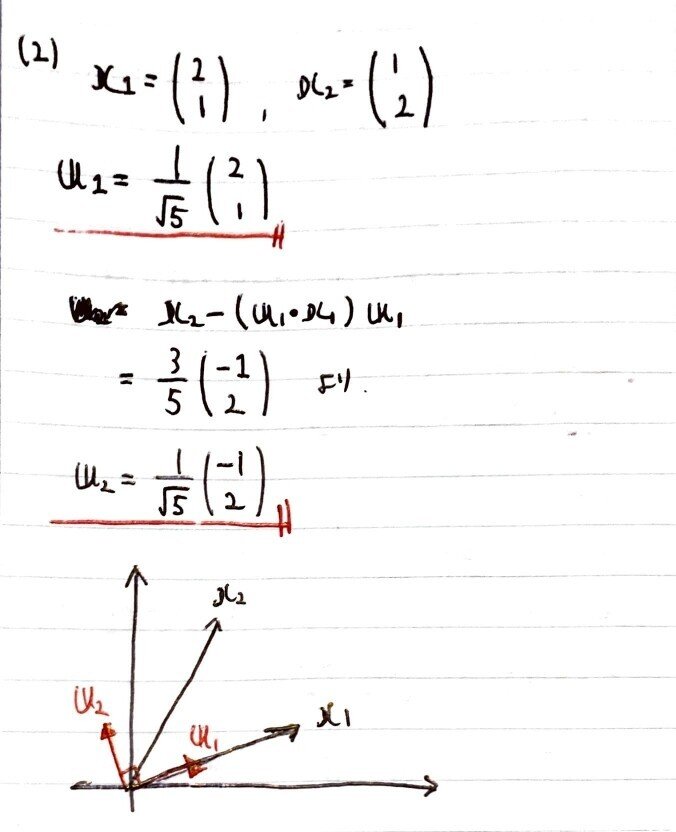 (2)
x₁ = (2 1), x₂ = (1 2)
u₁ = 1/√5 (2 1)
x₂ - (u₁・x₁) u₁
= 3/5 (-1 2) より.
u₂ = 1/√5 (-1 2)
x₂
u₂
u₁
x₁